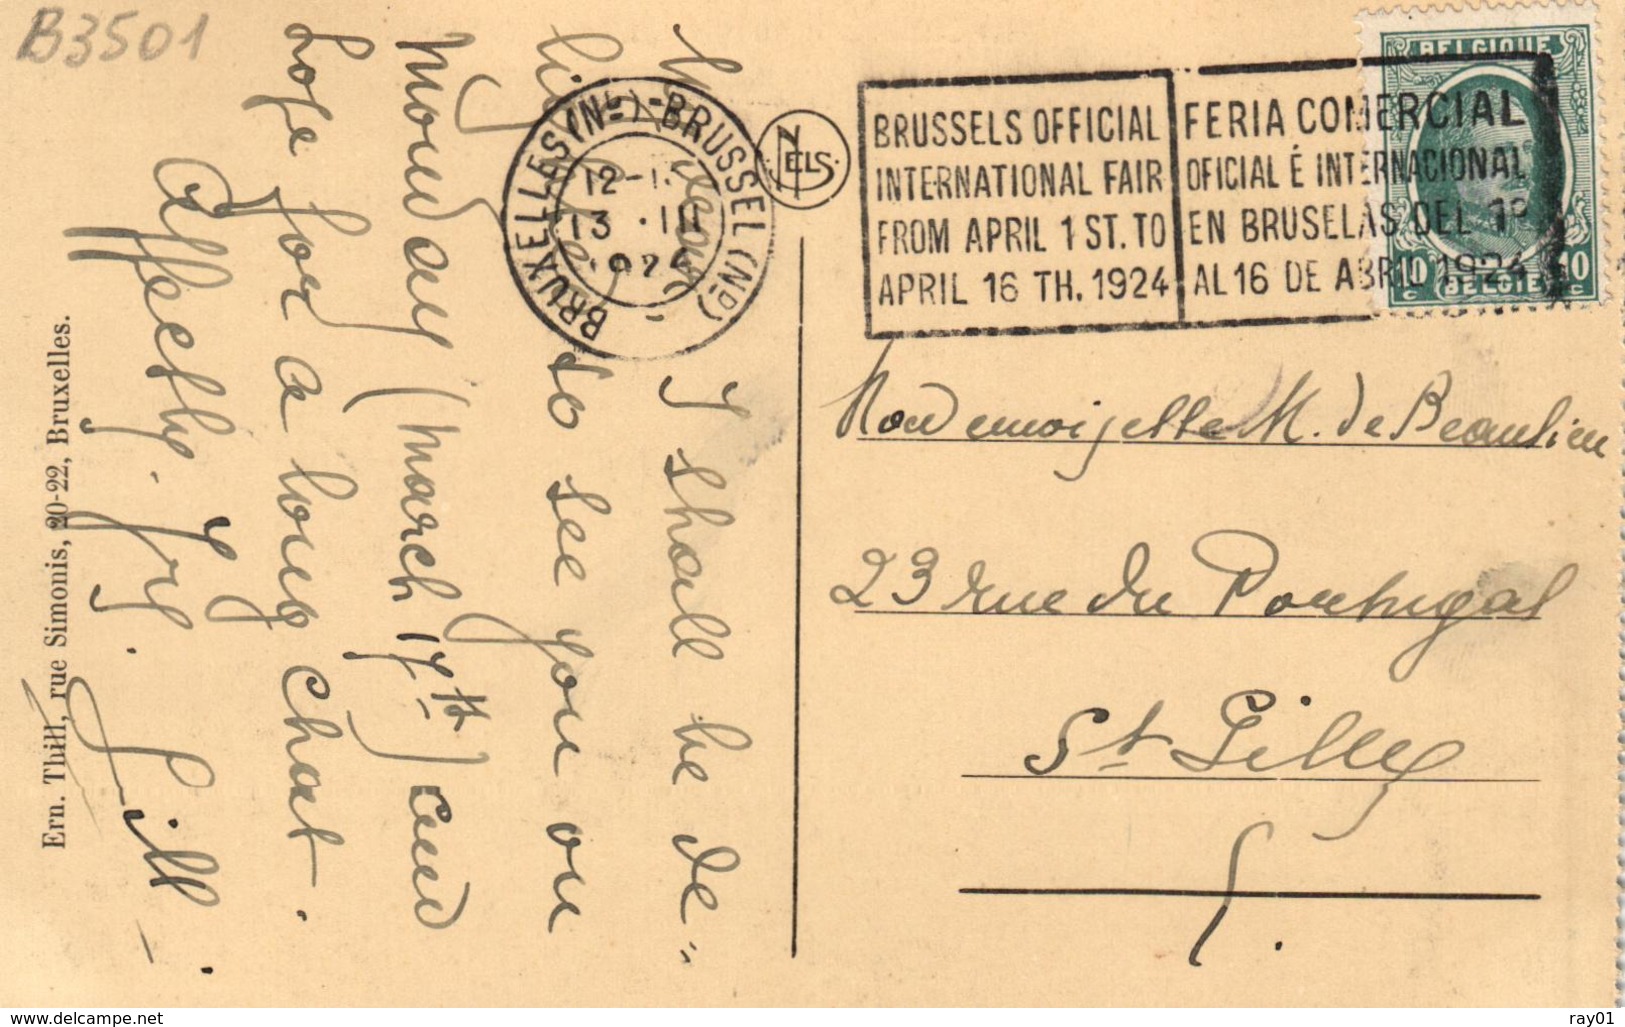 B3501
My dear, I shall be de-
lighted to see you on
monday (march 17th) and
hope for a long chat.
Affectly. Yrs.
Gill.
Ern. Thill, rue Simonis, 20-22, Bruxelles.
BRUXELLES (Nd) - BRUSSEL (Nd)
12-
13 . III
1924
NELS
BRUSSELS OFFICIAL
INTERNATIONAL FAIR
FROM APRIL 1 ST. TO
APRIL 16 TH. 1924
FERIA COMERCIAL
OFICIAL É INTERNACIONAL
EN BRUSELAS DEL 1º
AL 16 DE ABRIL 1924
BELGIQUE
10 c BELGIE 10 c
Mademoiselle M. de Beaulieu
23 rue du Portugal
St Gilles
www.delcampe.net
ray01